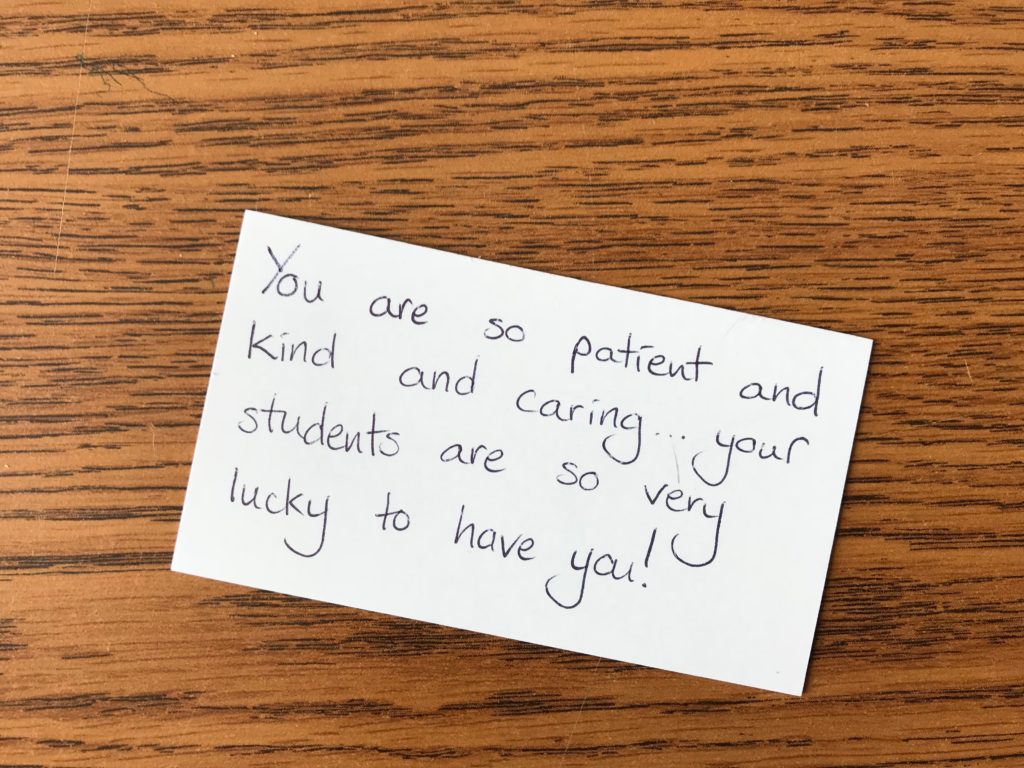 You are so patient and
kind and caring... your
students are so very
lucky to have you!